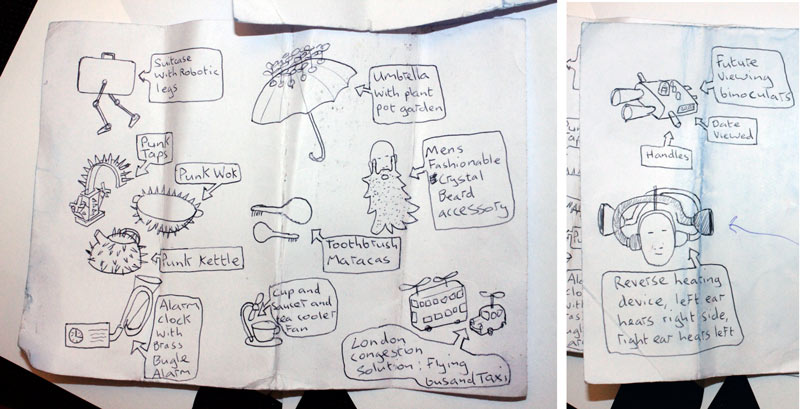 Suitcase
with Robotic
legs
Umbrella
with plant
pot garden
Punk
Taps
Punk Wok
Mens
Fashionable
Crystal
Beard
accessory
Toothbrush
Maracas
Punk Kettle
Alarm
clock
with
Brass
Bugle
Alarm
Cup and
saucer and
tea cooler
Fan
London
congestion
solution: Flying
bus and Taxi
Future
Viewing
binoculars
Date
Viewed
Handles
Reverse hearing
device, left ear
hears right side,
right ear hears left